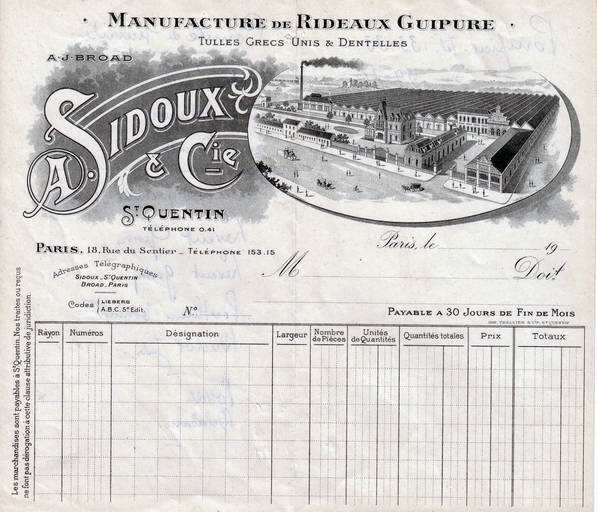 · MANUFACTURE DE RIDEAUX GUIPURE ·
TULLES GRECS UNIS & DENTELLES
A·J·BROAD
A. SIDOUX
& Cie
ST QUENTIN
TÉLÉPHONE 0.41
PARIS, 18, Rue du Sentier _ TÉLÉPHONE 153.15
Paris, le 19
Adresses Télégraphiques
SIDOUX _ ST QUENTIN
BROAD _ PARIS
M
Doit
Codes { LIEBERS
A.B.C. 5e Edit.
N°
PAYABLE A 30 JOURS DE FIN DE MOIS
Rayon Numéros Désignation Largeur Nombre de Pièces Unités de Quantités Quantités totales Prix Totaux
Les marchandises sont payables à St Quentin. Nos traites ou reçus
ne font pas dérogation à cette clause attributive de juridiction.